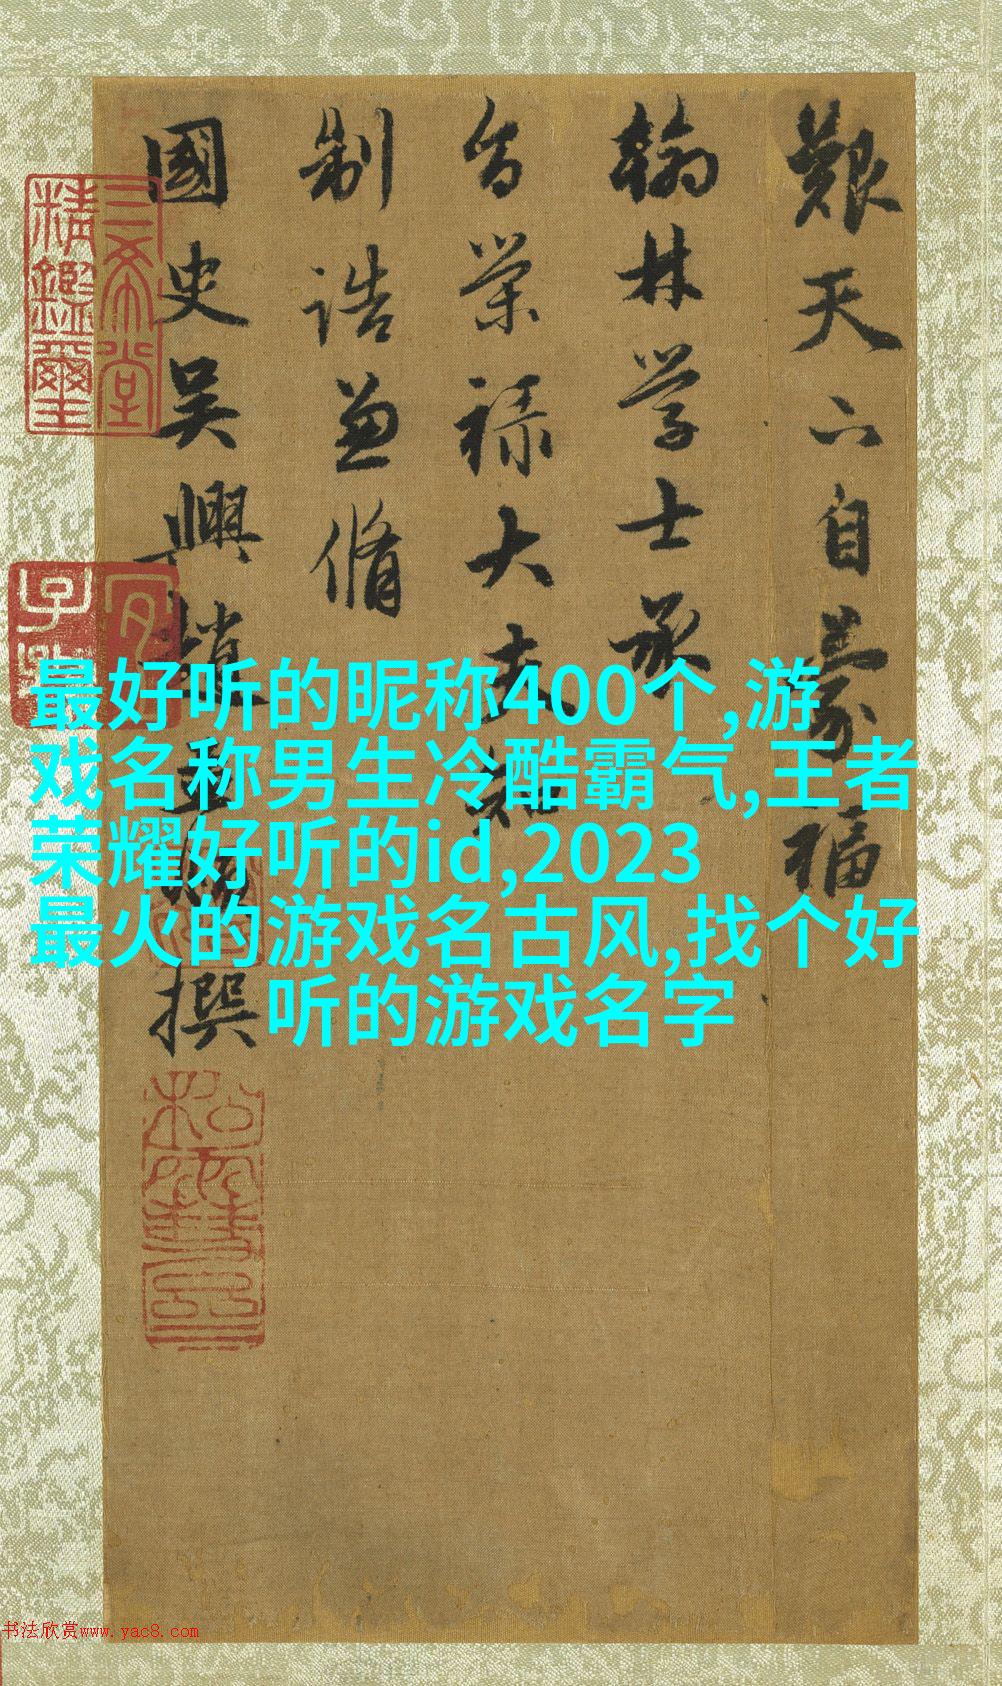 艱天之自蒙福
翰林学士承
旨荣禄大夫知
制诰兼脩
國史吴興趙孟頫
撰
三希堂
精鑑璽
宜
子
松雪齋
最好听的昵称400个,游
戏名称男生冷酷霸气,王者
荣耀好听的id,2023
最火的游戏名古风,找个好
听的游戏名字
书法欣赏www.yac8.com